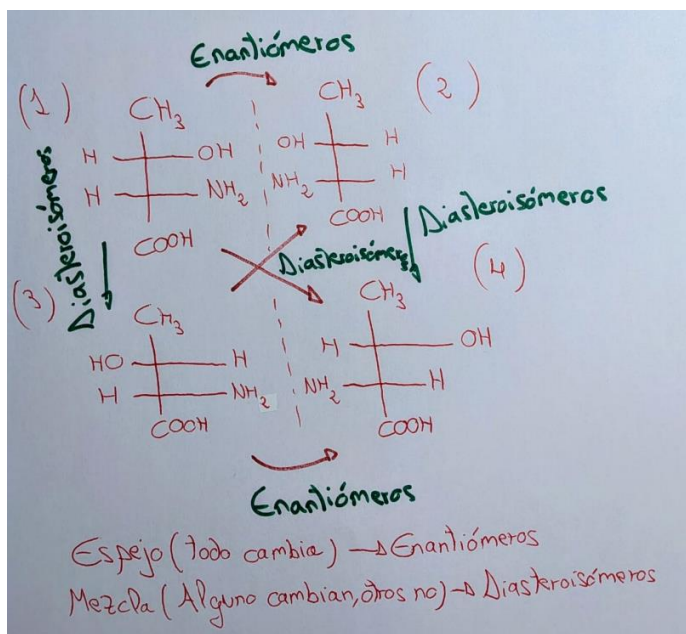 Enantiómeros
(1) (2)
CH3 CH3
H OH OH H
H NH2 NH2 H
COOH COOH
Diasteroisómeros
Diasteroisómeros
Diasteroisómeros
(3) (4)
CH3 CH3
HO H H OH
H NH2 NH2 H
COOH COOH
Enantiómeros
Espejo (todo cambia) → Enantiómeros
Mezcla (Alguno cambian, otros no) → Diasteroisómeros